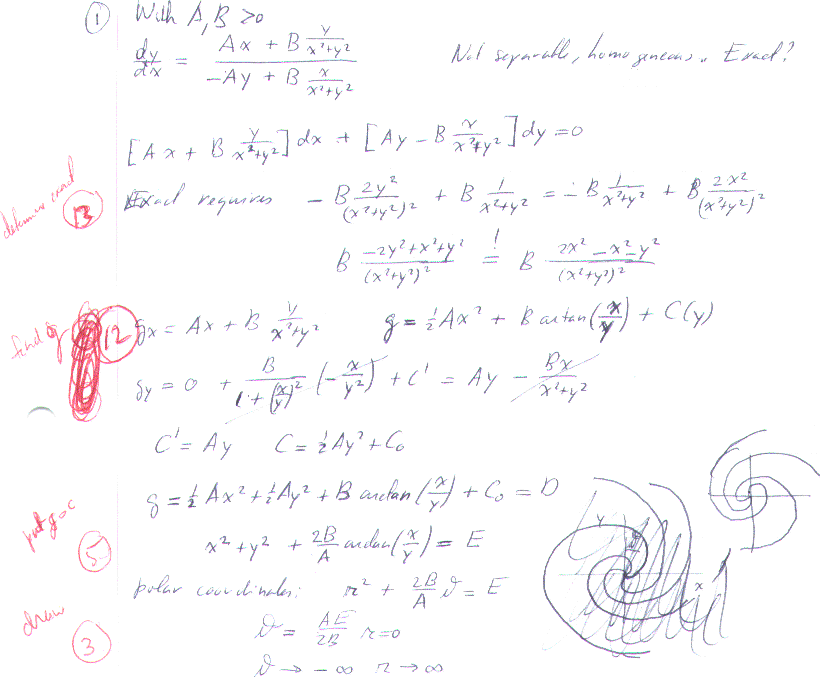 ① With A, B > 0
dy/dx = (Ax + B y/(x²+y²)) / (-Ay + B x/(x²+y²))    Not separable, homogeneous. Exact?
[Ax + B y/(x²+y²)] dx + [Ay - B x/(x²+y²)] dy = 0
determine exact ⑬ Exact requires - B 2y²/(x²+y²)² + B 1/(x²+y²) = - B 1/(x²+y²) + B 2x²/(x²+y²)²
B (-2y²+x²+y²)/(x²+y²)² =! B (2x²-x²-y²)/(x²+y²)²
find g ⑫ gx = Ax + B y/(x²+y²)    g = ½Ax² + B arctan(x/y) + C(y)
gy = 0 + B/(1+(x/y)²) (-x/y²) + C' = Ay - Bx/(x²+y²)
C' = Ay    C = ½Ay² + C₀
put g=c ⑤ g = ½Ax² + ½Ay² + B arctan(x/y) + C₀ = D
x² + y² + 2B/A arctan(x/y) = E
polar coordinates: r² + 2B/A ϑ = E
draw ③ ϑ = AE/2B r=0
ϑ → -∞ r → ∞
y
x